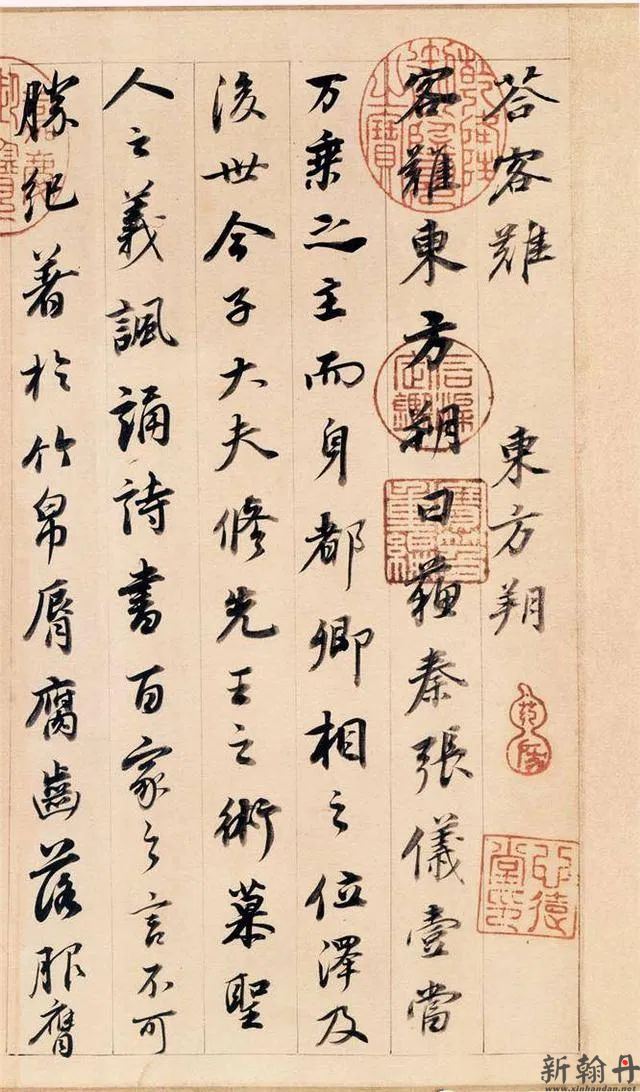 荅客難 東方朔
客難東方朔曰蘇秦張儀壹當
万乗之主而身都卿相之位澤及
後世今子大夫修先王之術慕聖
人之義諷誦詩書百家之言不可
勝紀著於竹帛脣腐齒落服膺
心遠堂印
新翰丹
www.xinhandan.net